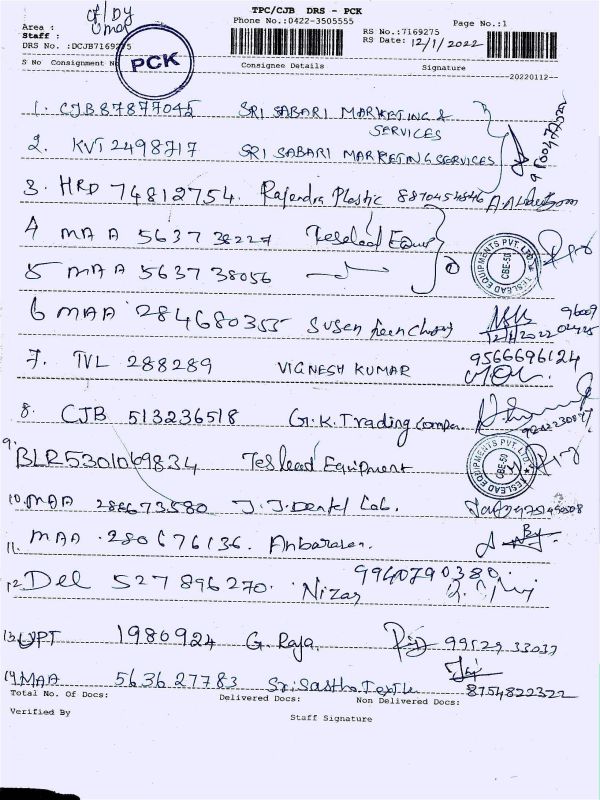 TPC/CJB DRS - PCK
Area : Of/Dy
Phone No.:0422-3505555
Page No.:1
Staff :
RS No.:7169275
DRS No. :DCJB7169275
RS Date: 12/1/2022
PCK
S No Consignment N
Consignee Details
Signature
20220112
1. CJB87877045 SRI SABARI MARKETING &
SERVICES
2. KVT 2498717 SRI SABARI MARKETING SERVICES
3. HRD 74812754. Rajendra Plastic 8870454846
4 MAA 5637 38227 Teslead Equip
TESLEAD EQUIPMENTS PVT LTD
CBE-50
5 MAA 5637 38056
6 MAA 284680355 Susen
12/1/2022
7. TVL 288289 VIGNESH KUMAR 9566696124
8. CJB 513236518 G.K. Trading Compa
9. BLR5301069834 Teslead Equipment
TESLEAD EQUIPMENTS PVT LTD
CBE-50
10. MAA 286673580 J. J. Dental Lab.
11. MAA 280676136. Anbarasan.
12. Del 527896270. Nizar 9940790380.
13. UPT 1980924 G. Raja. 99529 33037
14 MAA 5636 27783 Sri Sastha Textile 8754822322
Total No. Of Docs:
Delivered Docs:
Non Delivered Docs:
Verified By
Staff Signature